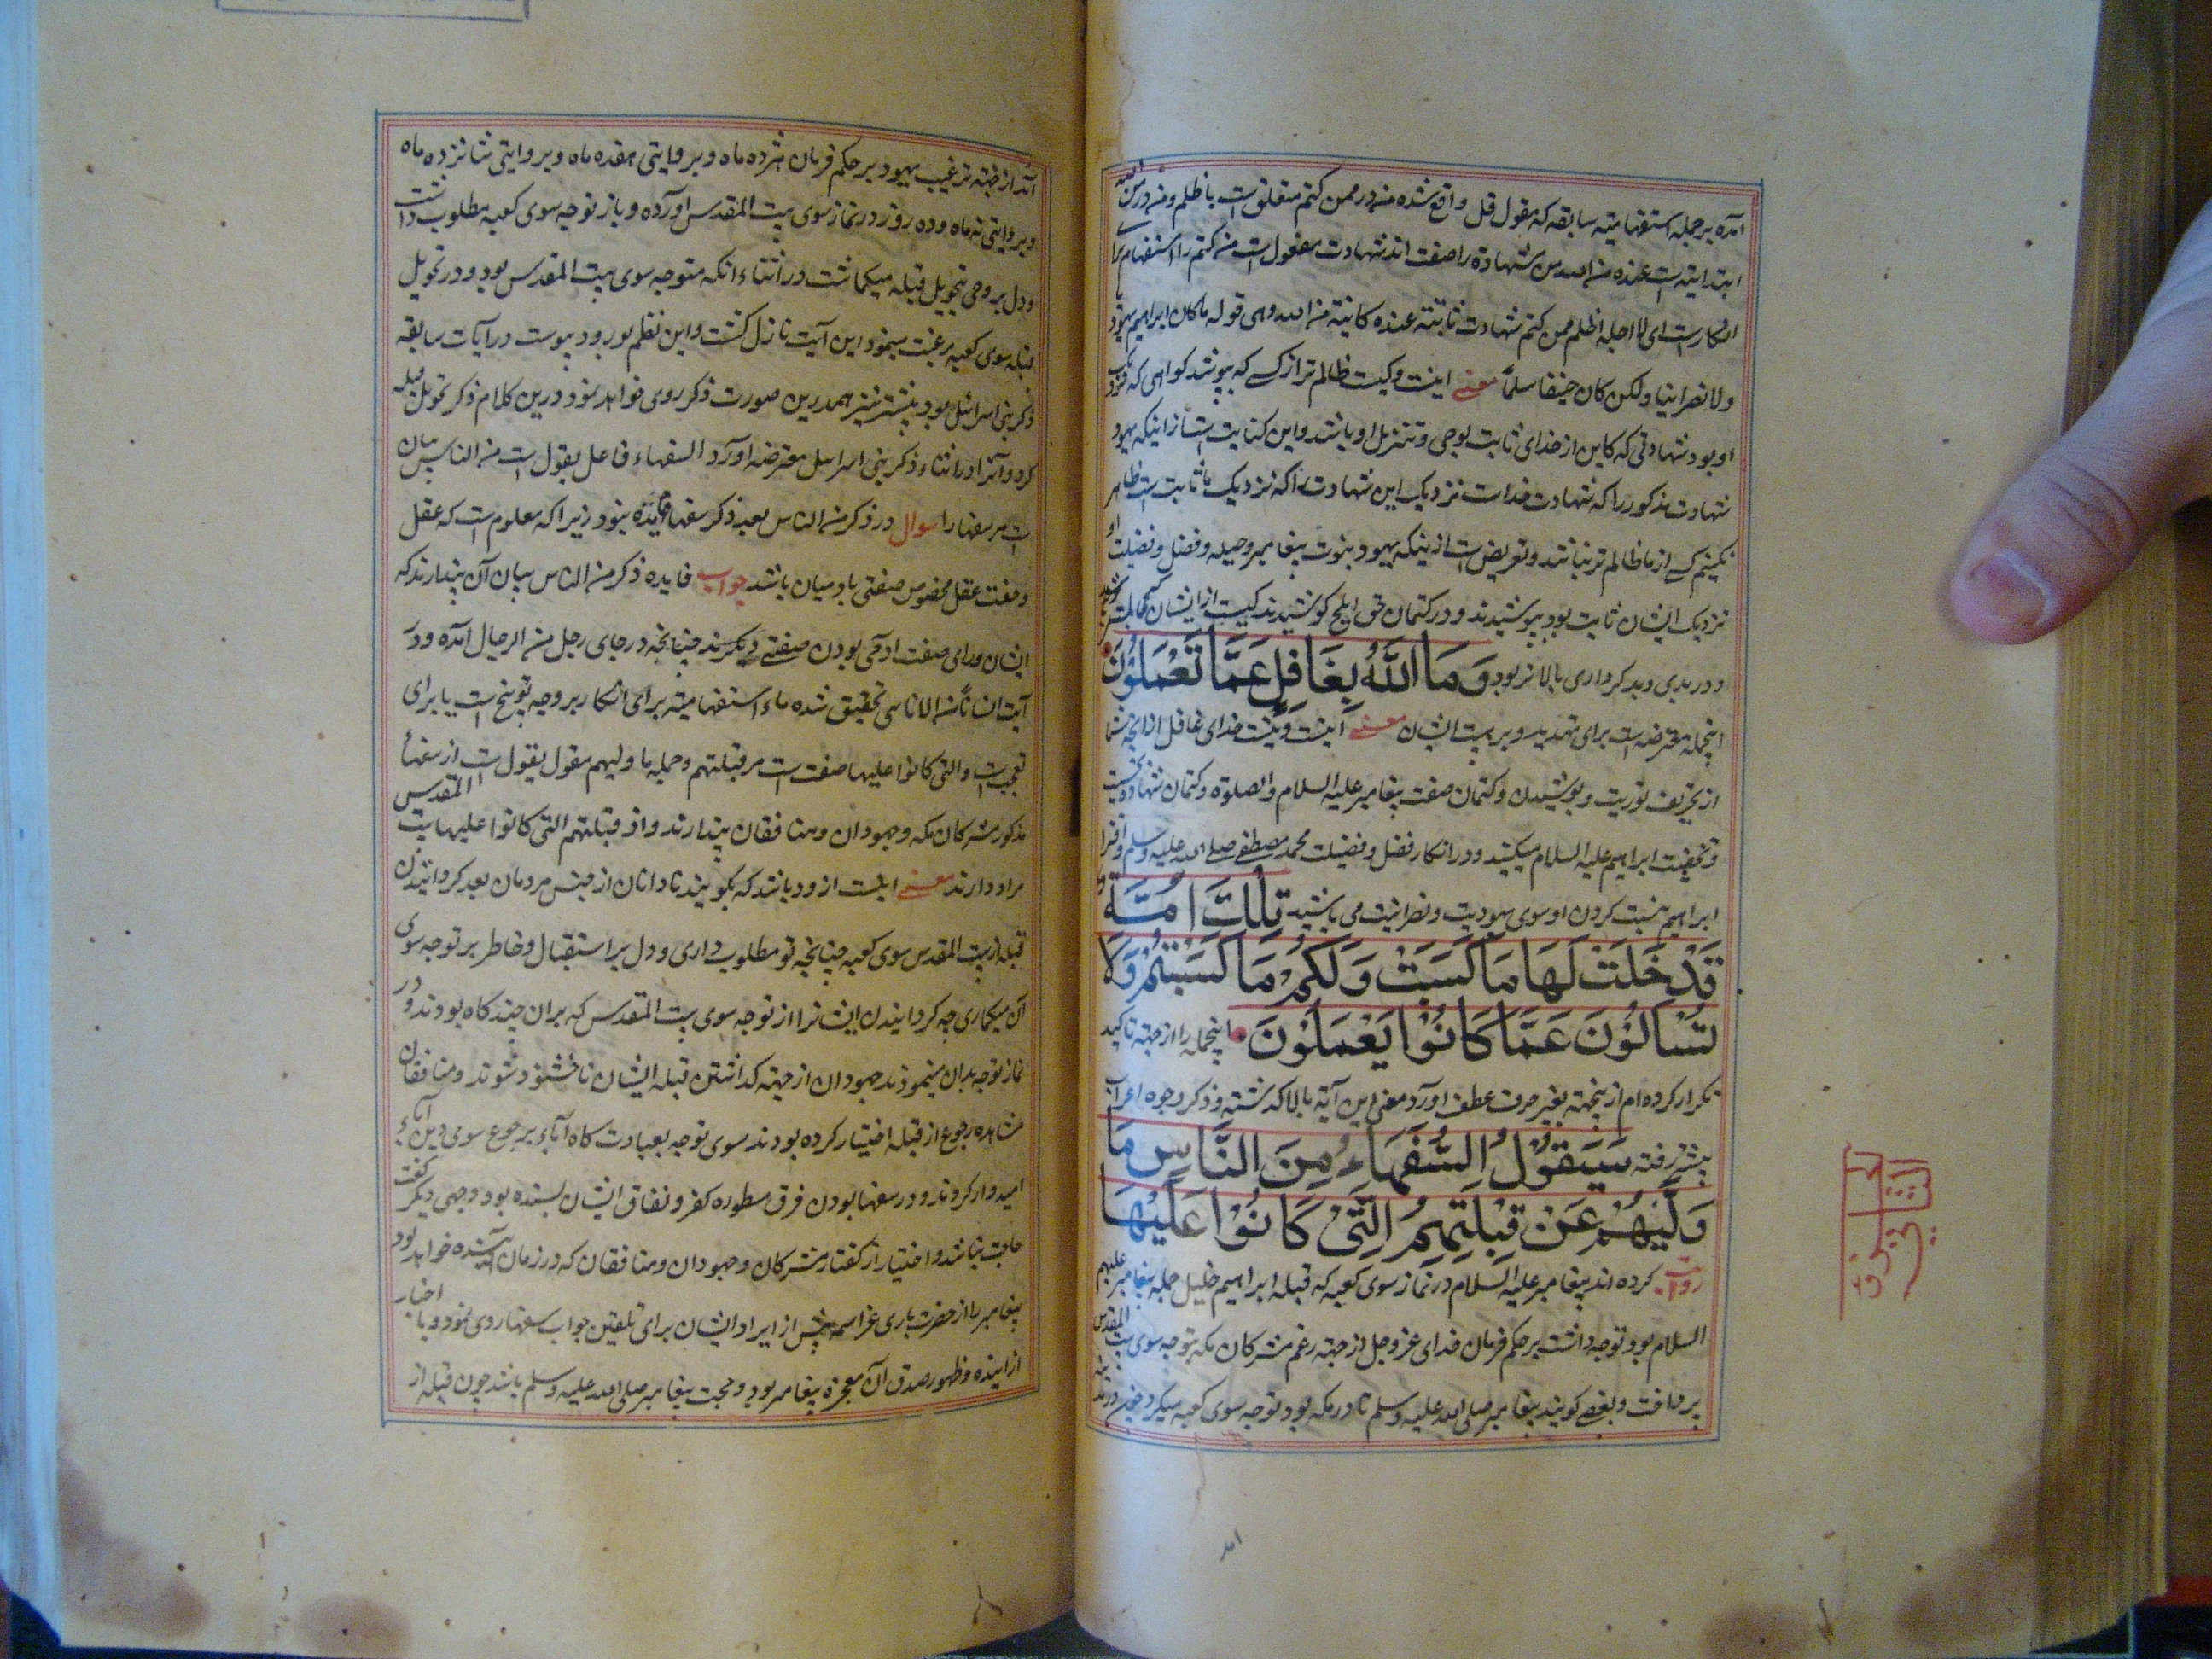 آمده بر جمله استفهامیته سابقه که مقول قل واقع شده منه در ممن کتم متعلق است باظلم و منه در من الله
ابتدائیه است عنده من الله من شهادة را صفت اند شهادت مفعول است منه کتم را استفهام برای
انکار است ای لا احد اظلم ممن کتم شهادت ثابتته عنده کائنته من الله وهی قوله ما کان ابراهیم یهودیا
ولا نصرانیا ولکن کان حنیفا مسلما معنی اینست و کیست ظالم تر از کسے که بپوشد کواهی که نزدیک
او بود شهادتی که کاین از خدای ثابت بوحی و تنزیل او باشد و این کنایت است از اینکه یهود
شهادت مذکور را که شهادت خداست نزدیک این شهادت را که نزدیک ما ثابت است ظاهر
نکنیم کسے از ما ظالم تر نباشد و تعریض است ازینکه یهود نبوت پیغامبر و حیله و فضل و فضیلت او
نزدیک ایشان ثابت بود بپوشیدند و در کتمان حق ابلج کوشیدند کیست از ایشان
و در بدی و بدکرداری بالاتر بود وَمَا اللَّهُ بِغَافِلٍ عَمَّا تَعْمَلُوْنَ
اینجمله معترضه است برای تهدید و بر ایشان معنی اینست و نیست خدای غافل از انچه شما
از تحریف توریت و پوشیدن و کتمان صفت پیغامبر علیه السلام والصلوة و کتمان شهادت
و حنیفیت ابراهیم علیه السلام میکنید و در انکار فضل و فضیلت محمد مصطفے صلے الله علیه وسلم و افترا
ابراهیم نسبت کردن او سوی یهودیت و نصرانیت می باشید تِلْكَ اُمَّةٌ
قَدْ خَلَتْ لَهَا مَا كَسَبَتْ وَلَكُمْ مَا كَسَبْتُمْ وَلَا
تُسْأَلُوْنَ عَمَّا كَانُوْا يَعْمَلُوْنَ اینجمله را از جهته تاکید
تکرار کرده ام ازینجهته بغیر حرف عطف اورد معنی این آیة بالا کذشته و ذکر وجوه اعراب
پیشتر رفته سَيَقُوْلُ السُّفَهَاءُ مِنَ النَّاسِ مَا
وَلَّيهُمْ عَنْ قِبْلَتِهِمُ الَّتِيْ كَانُوْا عَلَيْهَا
روایت کرده اند پیغامبر علیه السلام در نماز سوی کعبه که قبله ابراهیم خلیل جله پیغامبر علیهم
السلام بود توجه داشت بر حکم فرمان خدای عز و جل از جهته رغم مشرکان مکه بتوجه سوی بیت المقدس
پرداخت و بعضے کویند پیغامبر صلی الله علیه وسلم تا در مکه بود توجه سوی کعبه میکرد
امد
آمد از جهته ترغیب یهود بر حکم فرمان هژده ماه و بروایتی هفده ماه و بروایتی شانزده ماه
و بروایتی نه ماه و ده روز در نماز سوی بیت المقدس اورده و باز توجه سوی کعبه مطلوب داشت
و دل بر وحی تحویل قبله میکماشت در اثناء انکه متوجه سوی بیت المقدس بود و در تحویل
قبله سوی کعبه رغبت مینمود این آیت نازل کشت و این نظم پیوست در آیات سابقه
ذکر بنی اسرائیل بود پیشتر نیز همدرین صورت ذکر روی خواهد نمود درین کلام ذکر تحویل قبله
کرد و آنرا در اثناء ذکر بنی اسرایل معترضه اورد السفهاء فاعل یقول است من الناس بیان
است مر سفها را سوال در ذکر من الناس بعد ذکر سفها فایده نبود زیرا که معلوم است که عقل
وخفت عقل مخصوص صفتی بادمیان باشد جواب فایده ذکر من الناس بیان آن پندارند که
ایشان ورای صفت ادمی بودن صفتے دیکرند چنانچه در جای رجل من الرجال امده و در
آیت اناسا من الاناسی تحقیق شده ماء استفهامیته برای انکار بر وجه توبیخ است یا برای
تعجب است والتی کانوا علیها صفت است مر قبلتهم و جمله ما ولیهم مقول یقول است از سفهاء
مذکور مشرکان مکه و جهودان و منافقان پندارند و از قبلتهم التی کانوا علیها بیت المقدس
مراد دارند معنے اینست از زود باشد که بکویند نادانان از جنس مردمان بعد کردانیدن
قبله از بیت المقدس سوی کعبه چنانچه تو مطلوب داری و دل بر استقبال و خاطر بر توجه سوی
آن میکماری چه کردانیدن ایشانرا از توجه سوی بیت المقدس که بران چند کاه بودند و در
نماز توجه بدان مینمودند جهودان از جهته کذاشتن قبله ایشان ناخشنود شوند و منافقان
مشاهده رجوع از قبله اختیار کرده بودند سوی توجه بعبادت کاه آباء برجوع سوی دین آباء
امیدوار کردند و در سفها بودن فرق مسطوره کفر و نفاق ایشان بسنده بود وجهی دیکر کفت
حاجت نباشد و اختیار از کفتار مشرکان و جهودان و منافقان که در زمان آینده خواهد بود
پیغامبر را از حضرت باری عز اسمه پیش از ایراد ایشان برای تلقین جواب سفها روی نمود و با اخبار
از اینده و ظهور صدق آن معجزه پیغامبر بود و حجت پیغامبر صلی الله علیه وسلم باشد چون قبله از